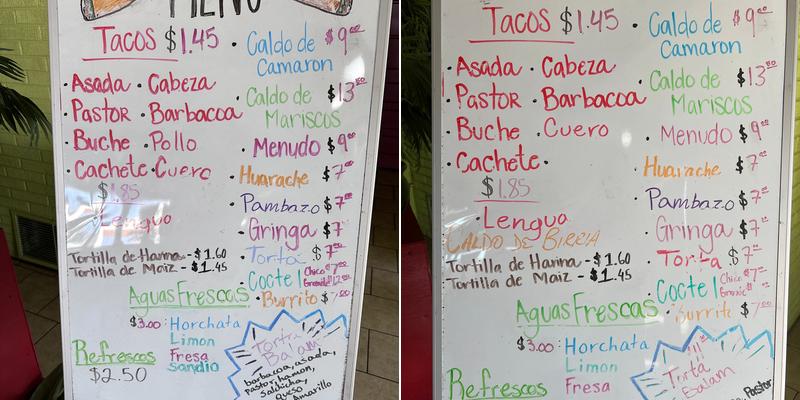 MENU
TACOS $1.45
· Asada · Cabeza
· PASTOR · Barbacoa
· Buche · Pollo
· Cachete · Cuero
$1.85
Lengua
Tortilla de Harina - $1.60
Tortilla de Maiz - $1.45
· Caldo de Camaron $9.00
· Caldo de Mariscos $13.50
· Menudo $9.00
· Huarache $7.00
· Pambazo $7.00
· Gringa $7
· Torta $7.00
· Coctel Chico $7.00
Grande $12.00
· Burrito $7.00
Aguas Frescas
$3.00: Horchata
Limon
Fresa
Sandia
Refrescos
$2.50
Torta Balam
barbacoa, asada,
pastor, hamon,
Salchicha,
queso
Amarillo
TACOS $1.45
· Asada · Cabeza
· PASTOR · Barbacoa
· Buche · Cuero
· Cachete ·
$1.85
Lengua
CALDO DE BIRRIA
Tortilla de Harina - $1.60
Tortilla de Maiz - $1.45
· Caldo de Camaron $9.00
· Caldo de Mariscos $13.50
· Menudo $9.00
· Huarache $7.00
· Pambazo $7.00
· Gringa $7
· Torta $7.00
· Coctel Chico $7
Grande $
· Burrito $7.00
Aguas Frescas
$3.00: Horchata
Limon
Fresa
Refrescos
Torta
Balam
Pastor